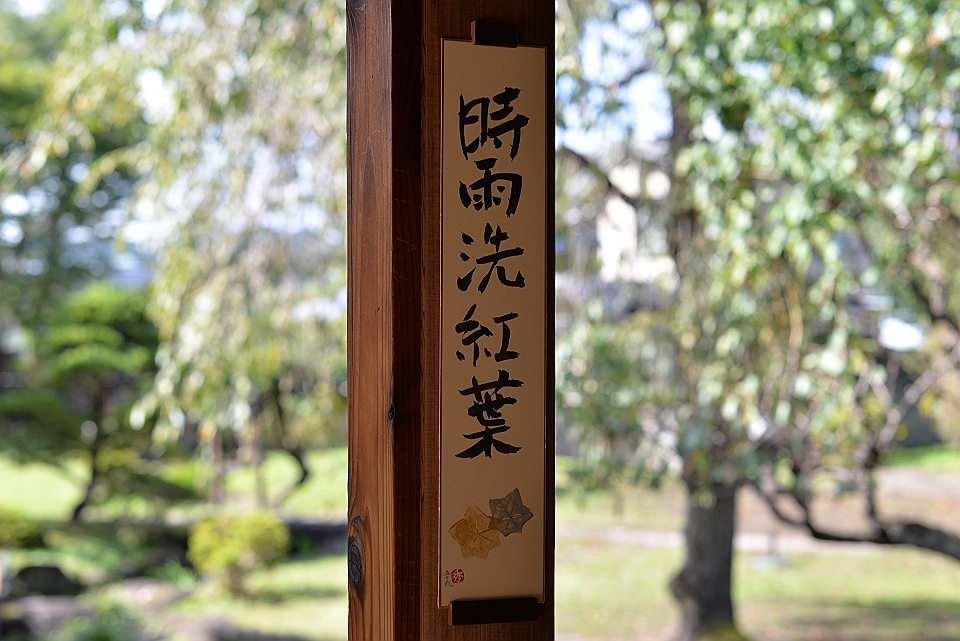 時雨洗紅葉